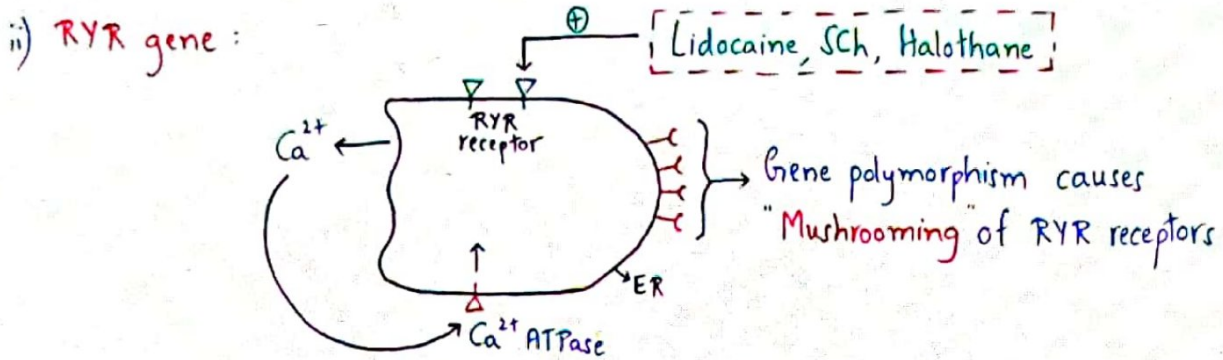 ii) RYR gene :
⊕
Lidocaine, SCh, Halothane
RYR
receptor
Ca²⁺
Gene polymorphism causes
"Mushrooming" of RYR receptors
ER
Ca²⁺ ATPase